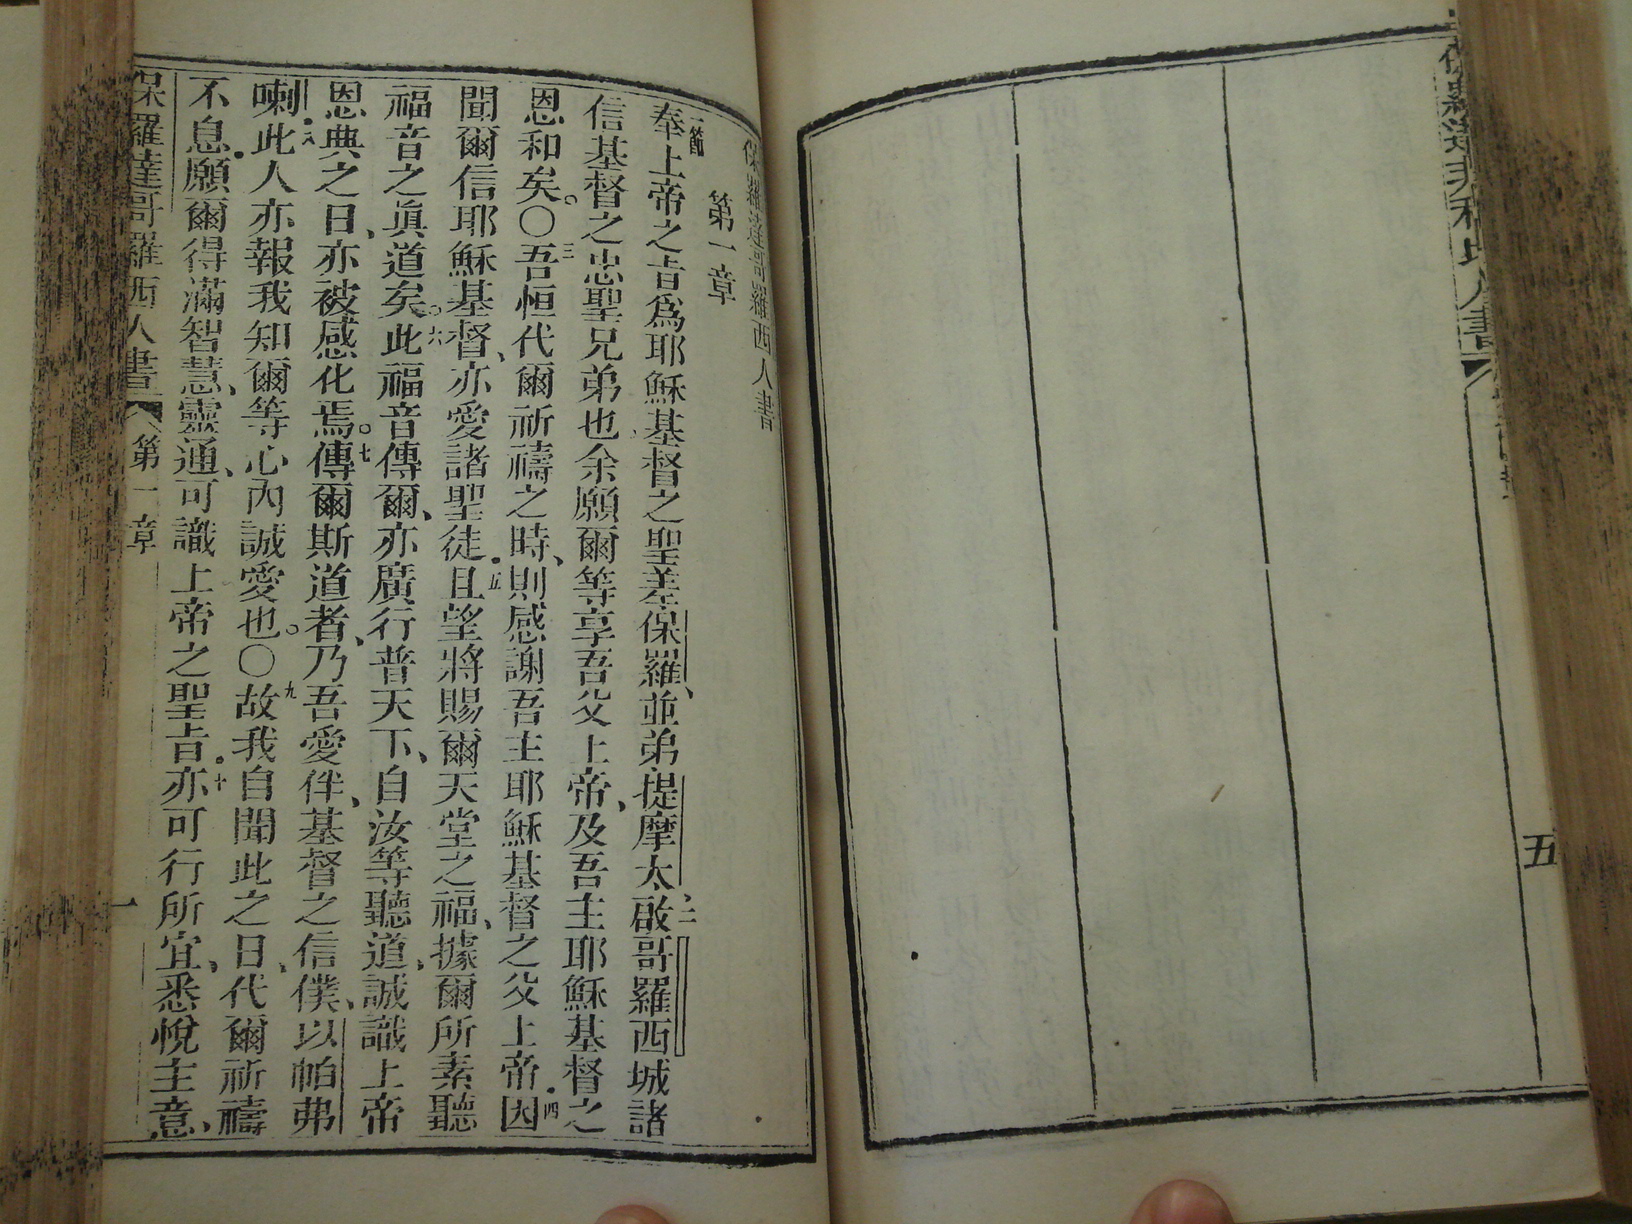 保羅達非利比人書
五
保羅達哥羅西人書
第一章
一節奉上帝之旨爲耶穌基督之聖差保羅、並弟提摩太、二啟哥羅西城諸
信基督之忠聖兄弟也余願爾等享吾父上帝、及吾主耶穌基督之
恩和矣。〇三吾恒代爾祈禱之時、則感謝吾主耶穌基督之父上帝四因
聞爾信耶穌基督、亦愛諸聖徒五且望將賜爾天堂之福、據爾所素聽
福音之眞道矣。六此福音傳爾、亦廣行普天下、自汝等聽道、誠識上帝
恩典之日、亦被感化焉。七傳爾斯道者、乃吾愛伴、基督之信僕、以帕弗
喇八此人亦報我知爾等心內誠愛也。〇九故我自聞此之日、代爾祈禱
不息願爾得滿智慧、靈通、可識上帝之聖旨十亦可行所宜、悉悅主意、
保羅達哥羅西人書
第一章
一